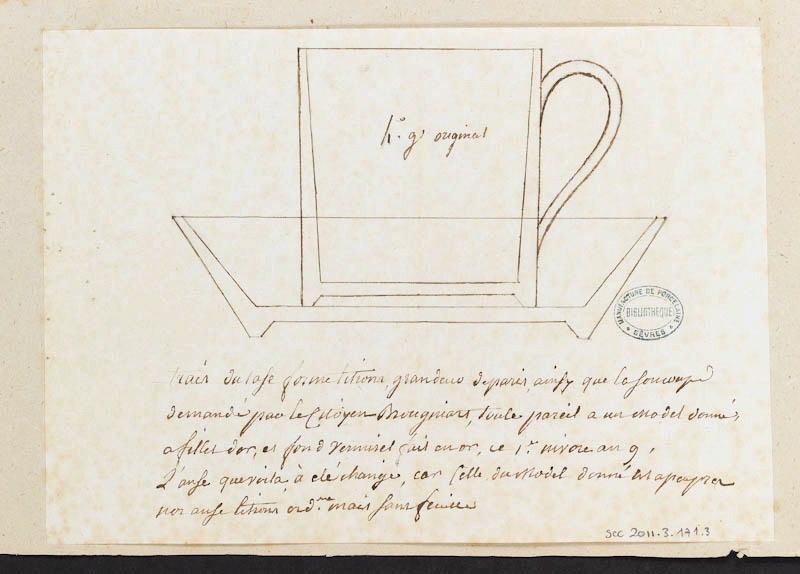 h.° g.r original
MANUFACTURE DE PORCELAINE
BIBLIOTHEQUE
SÈVRES
tracés du tase forme litrons, grandeur de paris, ainsy que la soucoupe
demandé par le Citoyen Brougniart, toute pareil a un Model donné,
a fillet d'or, et fond Vermisel fait en or, ce 1er nivose an 9,
L'anse que voila, à été changé, car Celle du Model donné est apeuprer
nos anse litrons ord.re mais sans feuille
SCC 2011.3.171.3